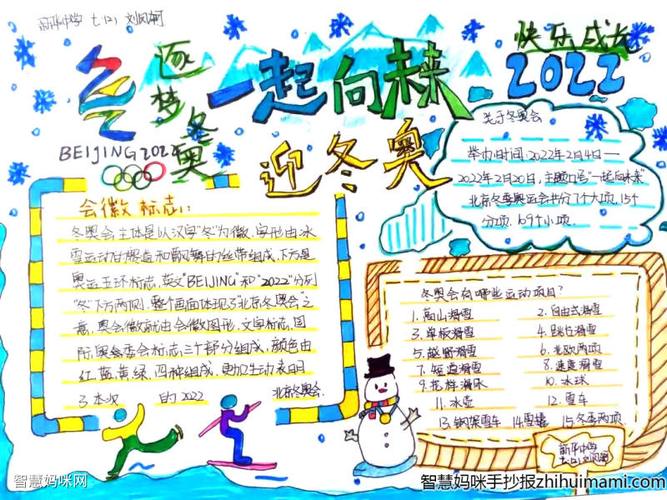 新华中学 七.(2) 刘凤轲
逐梦冬奥
一起向未来
快乐成长
2022
BEIJING 2022
迎冬奥
关于冬奥会
举办时间:2022年2月4日—
2022年2月20日,主题口号"一起向未来"
北京冬季奥运会共分7个大项,15个
分项,109个小项.
会徽 标志:
冬奥会主体是以汉字"冬"为徽,字形由冰
雪运动
和
舞的丝带组成,下方是
奥运五环标志,英文"BEIJING"和"2022"分列
"冬"下方两侧.整个画面体现了"北京冬奥会"之
意,奥会徽就由会徽图形,文字标志,国
际奥委会标志三个部分组成,颜色由
红,蓝,黄,绿,四种组成,更加生动表明
了本次 的2022 北京冬奥会.
冬奥会有哪些运动项目?
1.高山滑雪 2.自由式滑雪
3.单板滑雪 4.跳台滑雪
5.越野滑雪 6.北欧两项
7.短道滑雪 8.速度滑雪
9.花样滑冰 10.冰球
11.冰壶 12.雪车
13.钢架雪车 14.雪橇 15.冬季两项
新华中学
七.(2) 刘凤轲
智慧妈咪网
智慧妈咪手抄报zhihuimami.com